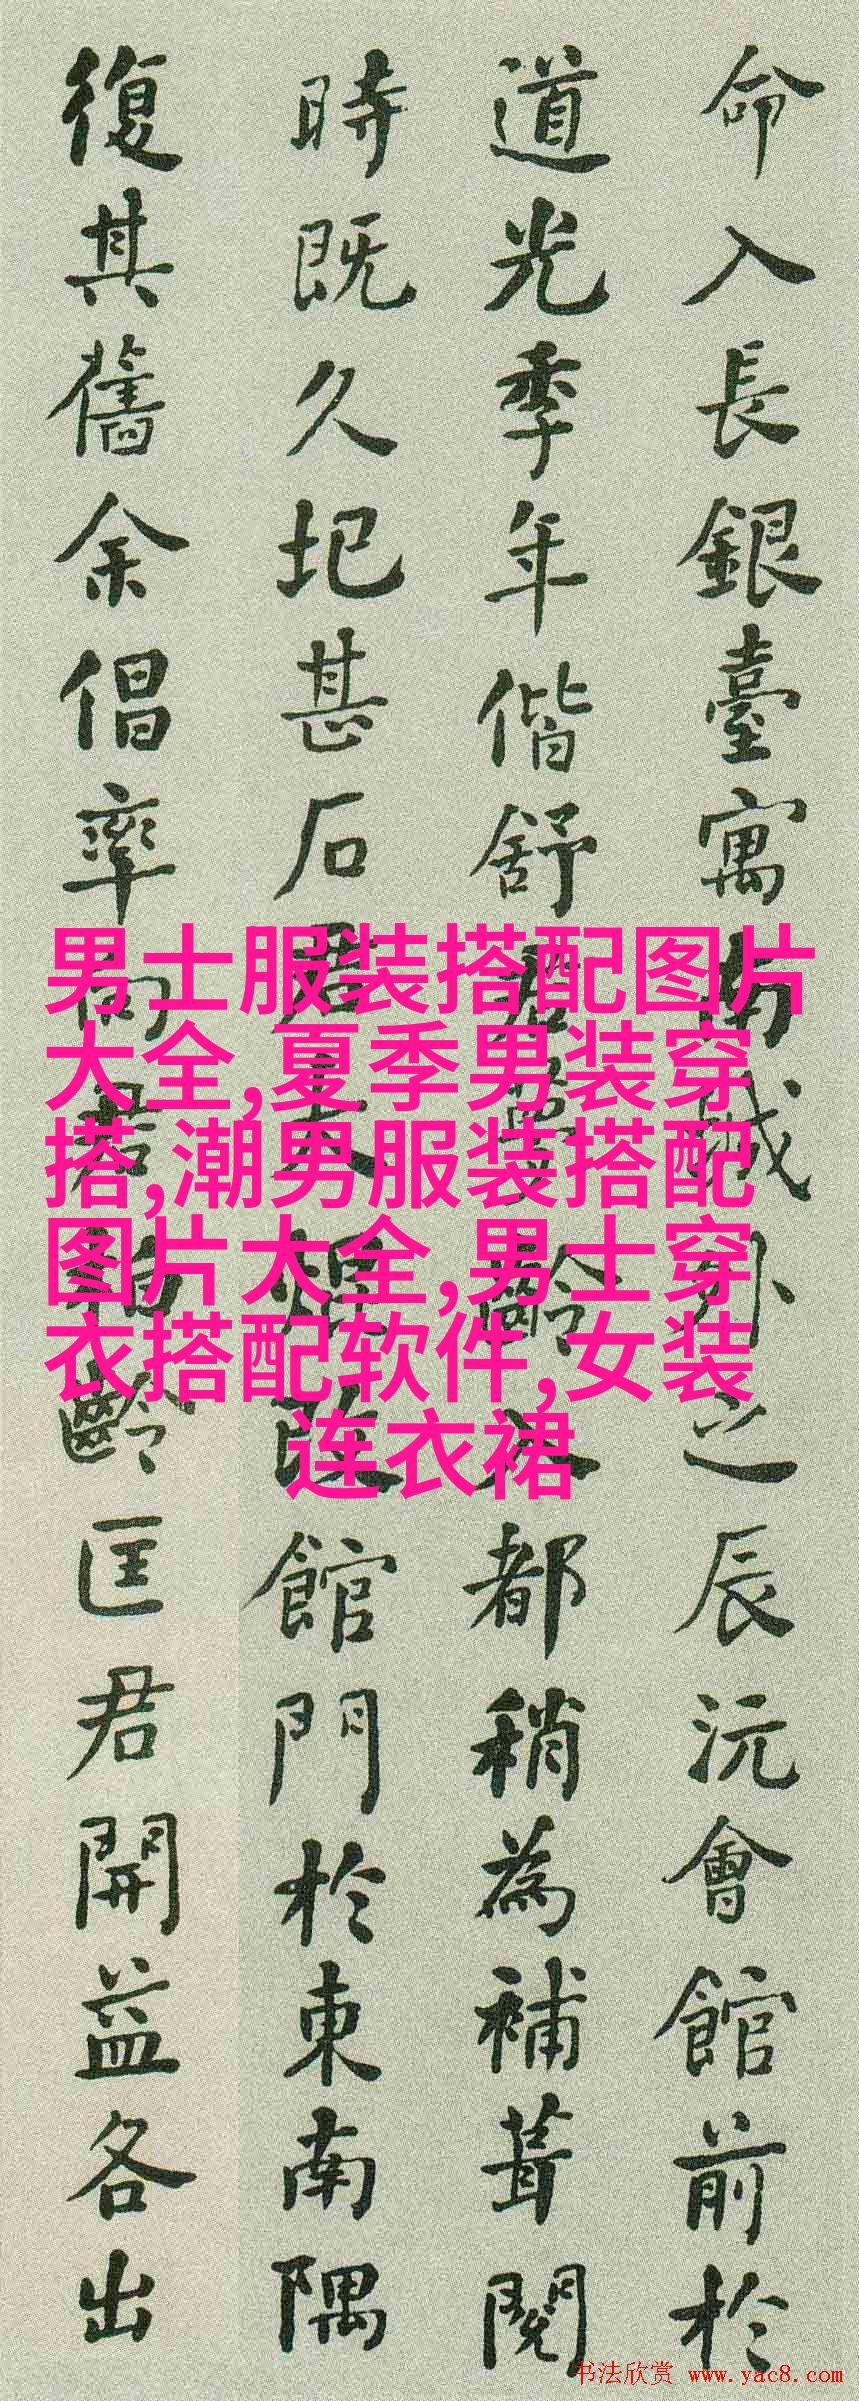 命入長銀臺寓南城外之辰沅會館前於
道光季年偕舒君夢齡入都稍為補葺閱
時既久圮甚石君大改館門於東南隅
復其舊余倡率向君齡匡君開益各出
男士服装搭配图片
大全,夏季男装穿
搭,潮男服装搭配
图片大全,男士穿
衣搭配软件,女装
连衣裙
书法欣赏 www.yac8.com